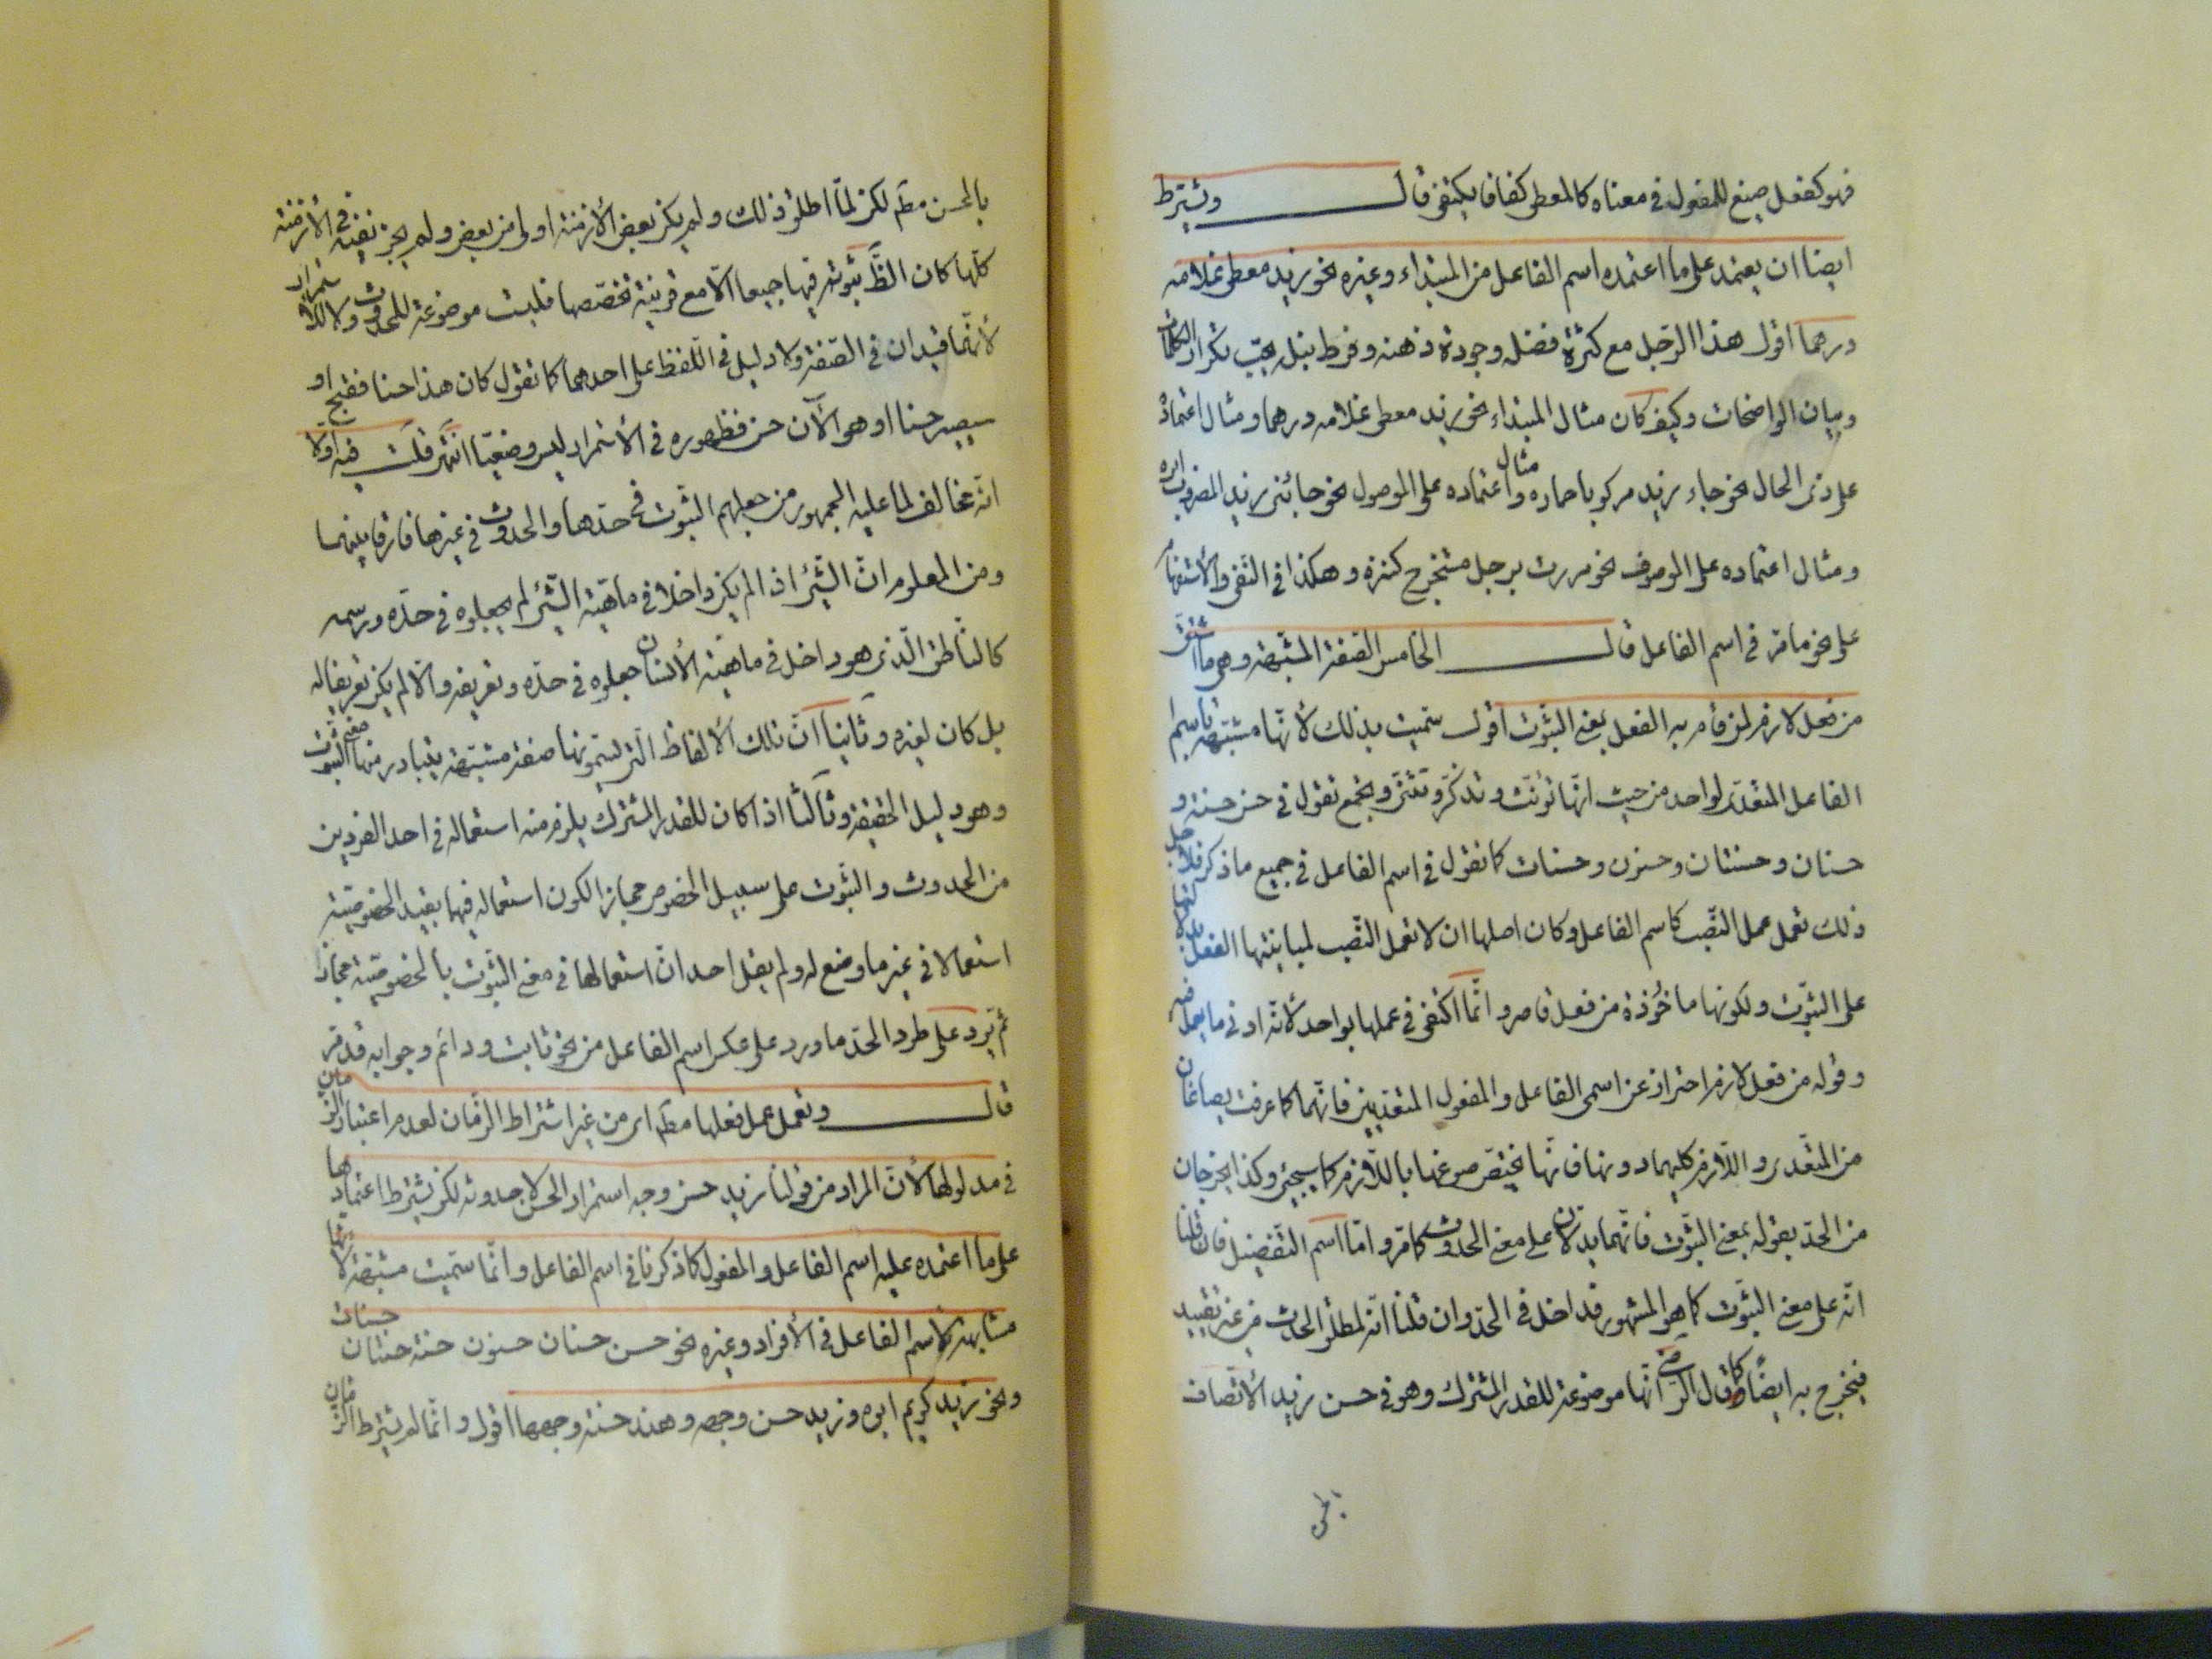 فهو كفعل صيغ للمفعول في معناه كالمعطى كفافا يكتفى قال ويشترط
ايضا ان يعتمد على ما اعتمده اسم الفاعل من المبتداء وغيره نحو زيد معطى غلامه
درهما اقول هذا الرّجل مع كثرة فضله وجودة ذهنه وفرط نبله يحبّ تكرار الكلمات
وبيان الواضحات وكيف كان مثال المبتداء نحو زيد معطى غلامه درهما ومثال اعتماده
على ذى الحال نحو جاء زيد مركوبا حماره ومثال اعتماده على الموصول نحو جائنى زيد المضروب ابوه
ومثال اعتماده على الموصوف نحو مررت برجل مستخرج كنزه وهكذا في النّفى والأستفهام
على نحو ما مرّ في اسم الفاعل قال الخامس الصّفة المشبّهة وهى ما اشتقّ
من فعل لازم لمن قام به الفعل بمعنى الثّبوت اقول سمّيت بذلك لأنّها مشبّهة باسم
الفاعل المتعدّى لواحد من حيث انّها تؤنّث وتذكّر وتثنّى وتجمع تقول في حسن حسنة و
حسنان وحسنتان وحسنون وحسنات كما تقول في اسم الفاعل في جميع ما ذكر فلاجل
ذلك تعمل عمل النّصب كاسم الفاعل وكان اصلها ان لا تعمل النّصب لمباينتها الفعل بدلالتها
على الثّبوت ولكونها مأخوذة من فعل قاصر وانّما اكتفى في عملها بواحد لأنّه ادنى ما يعمل فيه
وقوله من فعل لازم احتراز عن اسمى الفاعل والمفعول المتعدّيين فانّهما كما عرفت يصاغان
من المتعّدى واللّازم كليهما دونها فانّها يختصّ صوغها باللّازم كما سيجئ وكذا يخرجان
من الحدّ بقوله بمعنى الثّبوت فانّهما يدلّان على معنى الحدوث كما مرّ وامّا اسم التّفضيل فان قلنا
انّه على معنى الثّبوت كما هو المشهور فداخل في الحدّ وان قلنا انّه لمطلق الحدث من غير تقييد
فيخرج به ايضًا كما قال الرّضى انّها موضوعة للقدر المشترك وهو في حسن زيد الأتّصاف
بالحسن مطم لكن لمّا اطلق ذلك ولم يكن بعض الأزمنة اولى من بعض ولم يجز نفيه في الأزمنة
كلّها كان الظّ ثبوته فيها جميعا الّا مع قرينة تخصّصها فليست موضوعة للحدوث ولا للاستمرار
لأنّهما قيدان في الصّفة ولا دليل في اللّفظ على احدهما كما تقول كان هذا حسنا فقبح او
سيصير حسنا او هو الآن حسن فظهوره في الأستمرار ليس وضعيّا انتهى قلت فيه اوّلا
انّه مخالف لما عليه الجمهور من جعلهم الثّبوت في حدّها والحدوث في غيرها فارقا بينهما
ومن المعلوم انّ الشّئ اذا لم يكن داخلا في ماهيّة الشّئ لم يجعلوه في حدّه ورسمه
كالنّاطق الّذى هو داخل في ماهيّة الأنسان جعلوه في حدّه وتعريفه والّا لم يكن تعريفا له
بل كان لغيره وثانيا انّ تلك الألفاظ الّتى يسمّونها صفة مشبّهة يتبادر منها معنى الثّبوت
وهو دليل الحقيقة وثالثا اذا كان للقدر المشترك يلزم منه استعماله في احد الفردين
من الحدوث والثّبوت على سبيل الخصوص مجازا لكون استعماله فيهما بقيد الخصوصيّة
استعمالا في غير ما وضع له ولم يقل احد انّ استعمالها في معنى الثّبوت بالخصوصيّة مجاز
ثم يّرد على طرد الحدّ ما ورد على عكس اسم الفاعل من نحو ثابت ودائم وجوابه قد مرّ
قال وتعمل عمل فعلها مطم اى من غير اشتراط الزّمان لعدم اعتبار الزّمان
في مدلولها لأنّ المراد من قولنا زيد حسن وجهه استمرار الحسن لا حدوثه لكن يشترط اعتمادها
على ما اعتمده عليه اسم الفاعل والمفعول كما ذكرنا في اسم الفاعل وانّما سمّيت مشبّهة لأنّها
مشابهة لاسم الفاعل في الأفراد وغيره نحو حسن حسنان حسنون حسنة حسنتان حسنات
ونحو زيد كريم ابوه وزيد حسن وجهه وهند حسنة وجهها اقول وانّما لم يشترط الزّمان